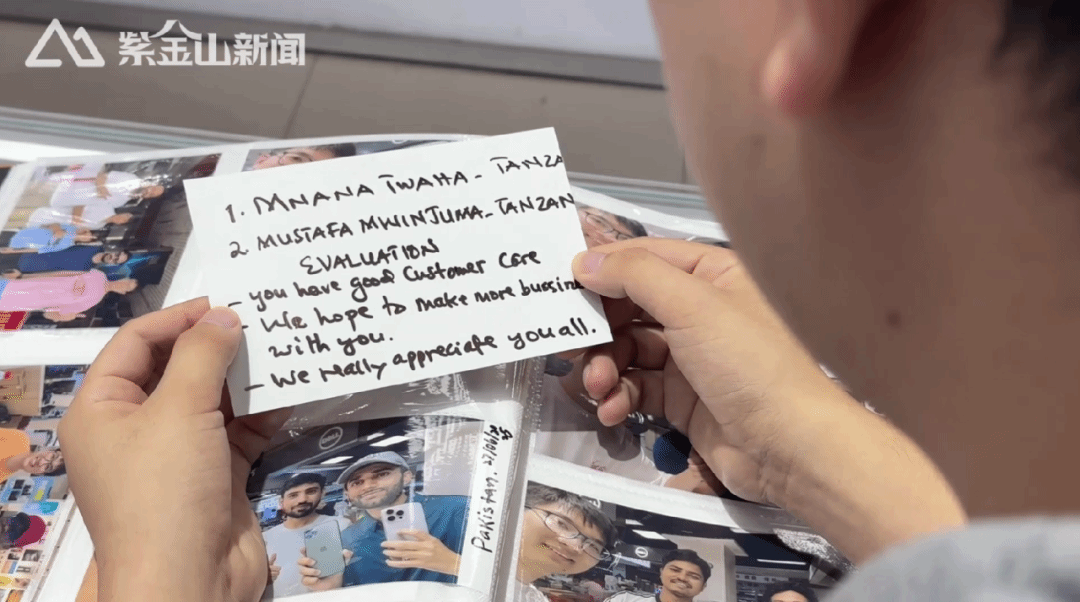 紫金山新闻
1. MNANA TWAHA - TANZA
2. MUSTAFA MWINJUMA - TANZAN
EVALUATION
- you have good customer care
- We hope to make more bussine
with you.
- We really appreciate you all.
DELL
Pakistan. 27/06/25